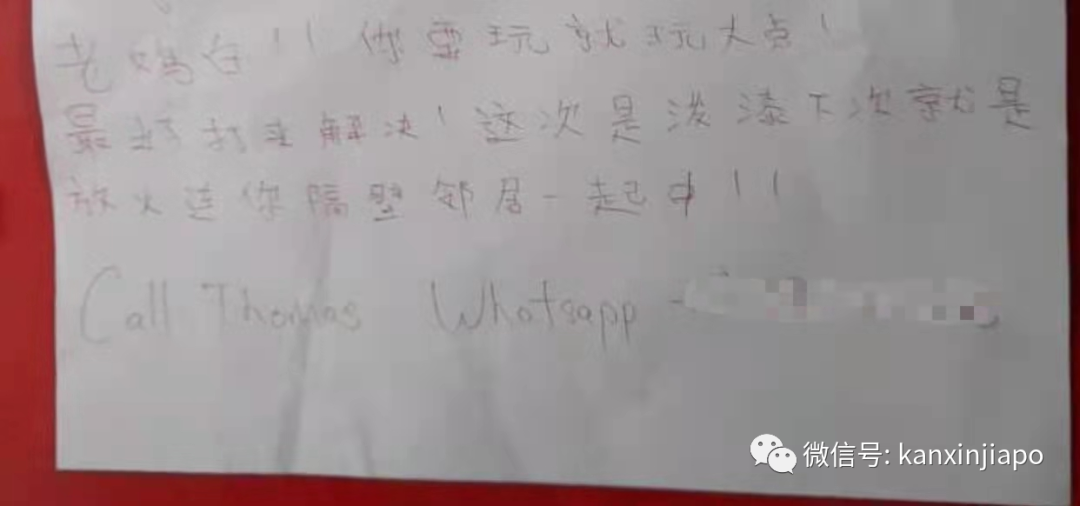 老鸡白!! 你要玩就玩大点!
最好打来解决!这次是泼漆下次就是
放火连你隔壁邻居一起中!!
Call Thomas Whatsapp
微信号: kanxinjiapo